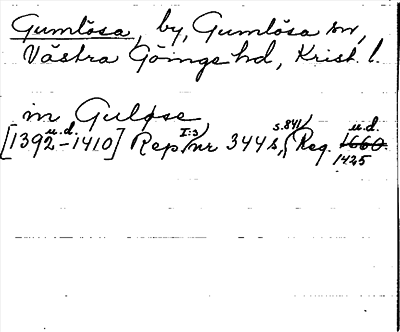 Gumlösa, by, Gumlösa sn,
Västra Göinge hd, Krist. l.
in Guløse
[1392 u.d. -1410] Rep I:3) nr 3448, s.841) Reg. 1660 u.d.
1425